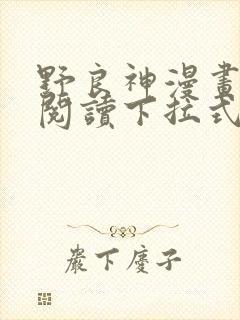 野良神漫畫
閱讀下拉式
嚴下慶子